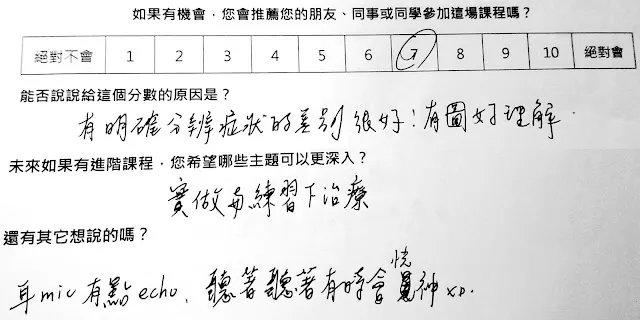 如果有機會，您會推薦您的朋友、同事或同學參加這場課程嗎？
絕對不會 1 2 3 4 5 6 7 8 9 10 絕對會
能否說說給這個分數的原因是？
有明確分辨症狀的差別很好！有圖好理解．
未來如果有進階課程，您希望哪些主題可以更深入？
實做 練習下治療
還有其它想說的嗎？
耳mic有點echo、聽著聽著有時會恍神 xD.